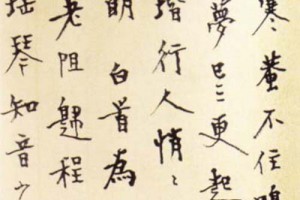 寒蛩不住鳴
夢已三更起
階行人悄〻
明白首為
老阻歸程
瑶琴知音少